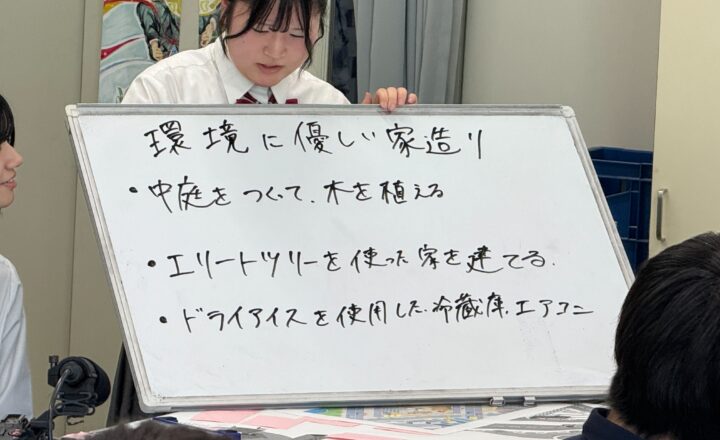 環境に優しい家造り
・中庭をつくって、木を植える
・エリートツリーを使った家を建てる.
・ドライアイスを使用した.冷蔵庫.エアコン